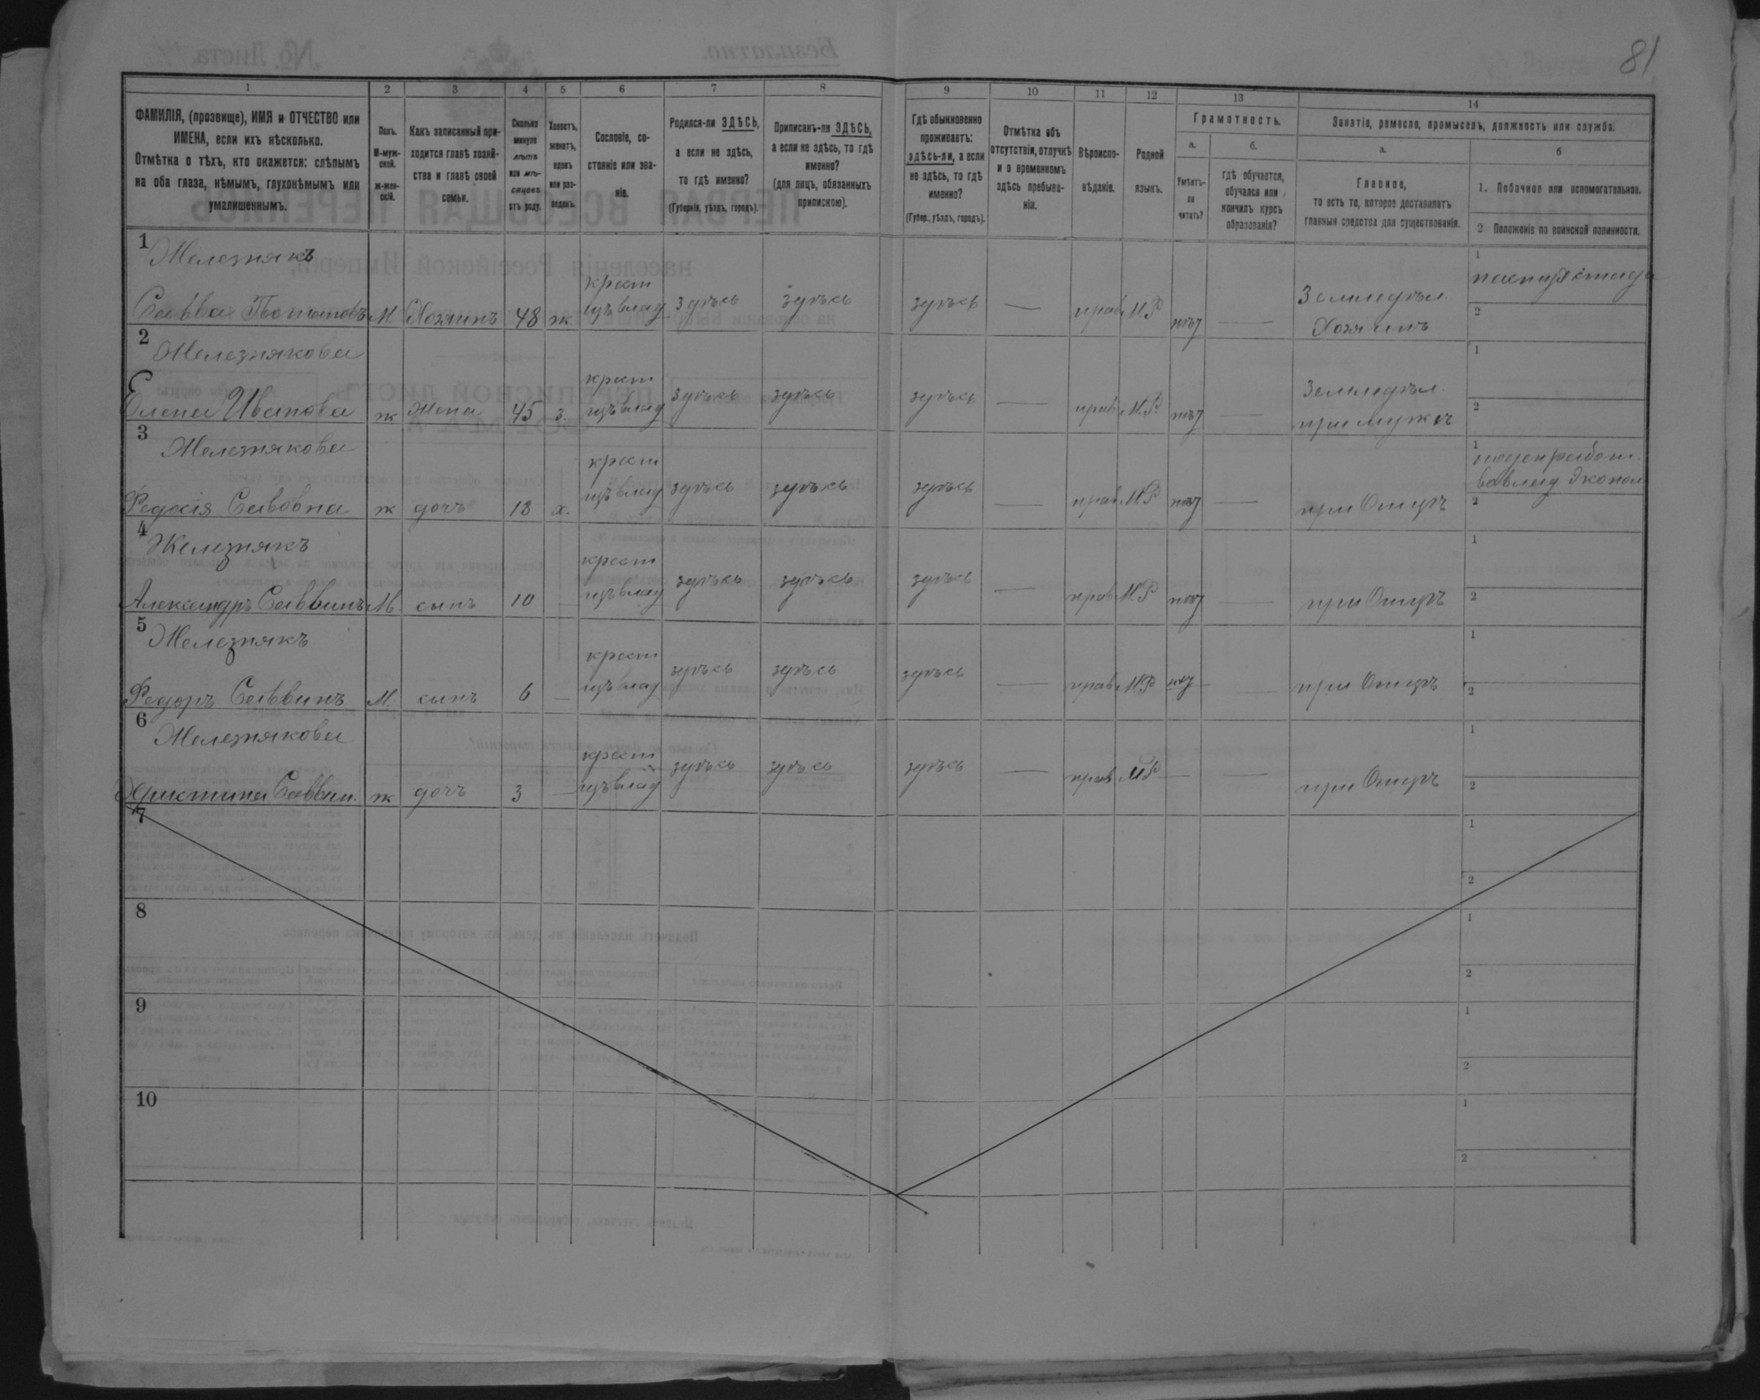 81
1 2 3 4 5 6 7 8 9 10 11 12 13 14
ФАМИЛІЯ, (прозвище), ИМЯ и ОТЧЕСТВО или ИМЕНА, если ихъ нѣсколько.
Отмѣтка о тѣхъ, кто окажется: слѣпымъ на оба глаза, нѣмымъ, глухонѣмымъ или умалишеннымъ.
Полъ.
М-мужской.
ж-женскій.
Какъ записанный приходится главѣ хозяйства и главѣ своей семьи.
Сколько минуло лѣтъ или мѣсяцевъ отъ роду.
Холостъ, женатъ, вдовъ или разведенъ.
Сословіе, состояніе или званіе.
Родился-ли ЗДѢСЬ, а если не здѣсь, то гдѣ именно?
(Губернія, уѣздъ, городъ).
Приписанъ-ли ЗДѢСЬ, а если не здѣсь, то гдѣ именно?
(для лицъ, обязанныхъ припискою).
Гдѣ обыкновенно проживаетъ: здѣсь-ли, а если не здѣсь, то гдѣ именно?
(Губер., уѣздъ, городъ).
Отмѣтка объ отсутствіи, отлучкѣ и о временномъ здѣсь пребываніи.
Вѣроисповѣданіе.
Родной языкъ.
Грамотность.
а.
Умѣетъ-ли читать?
б.
гдѣ обучается, обучался или кончилъ курсъ образованія?
Занятіе, ремесло, промыселъ, должность или служба.
а.
Главное,
то есть то, которое доставляетъ главныя средства для существованія.
б
1. Побочное или вспомогательное.
2 Положеніе по воинской повинности.
1 Железнякъ
Савва Потаповъ М. Хозяинъ 48 ж. крест изъ влад здѣсь здѣсь здѣсь — прав. М.Р. нѣт — Земледѣл. Хозяинъ
2 Железнякова
Елена Иванова ж жена 45 з. крест изъ влад здѣсь здѣсь здѣсь — прав. М.Р. нѣт — Земледѣл. при мужѣ
3 Железнякова
Федосія Саввова ж дочь 18 х. крест изъ влад здѣсь здѣсь здѣсь — прав. М.Р. нѣт — при Отцѣ
4 Железнякъ
Александръ Саввинъ М сынъ 10 — крест изъ влад здѣсь здѣсь здѣсь — прав. М.Р. нѣт — при Отцѣ
5 Железнякъ
Федоръ Саввинъ М. сынъ 6 — крест изъ влад здѣсь здѣсь здѣсь — прав. М.Р. нѣт — при Отцѣ
6 Железнякова
Христина Саввин. ж дочь 3 — крест изъ влад здѣсь здѣсь здѣсь — прав. М.Р. — — при Отцѣ
7
8
9
10